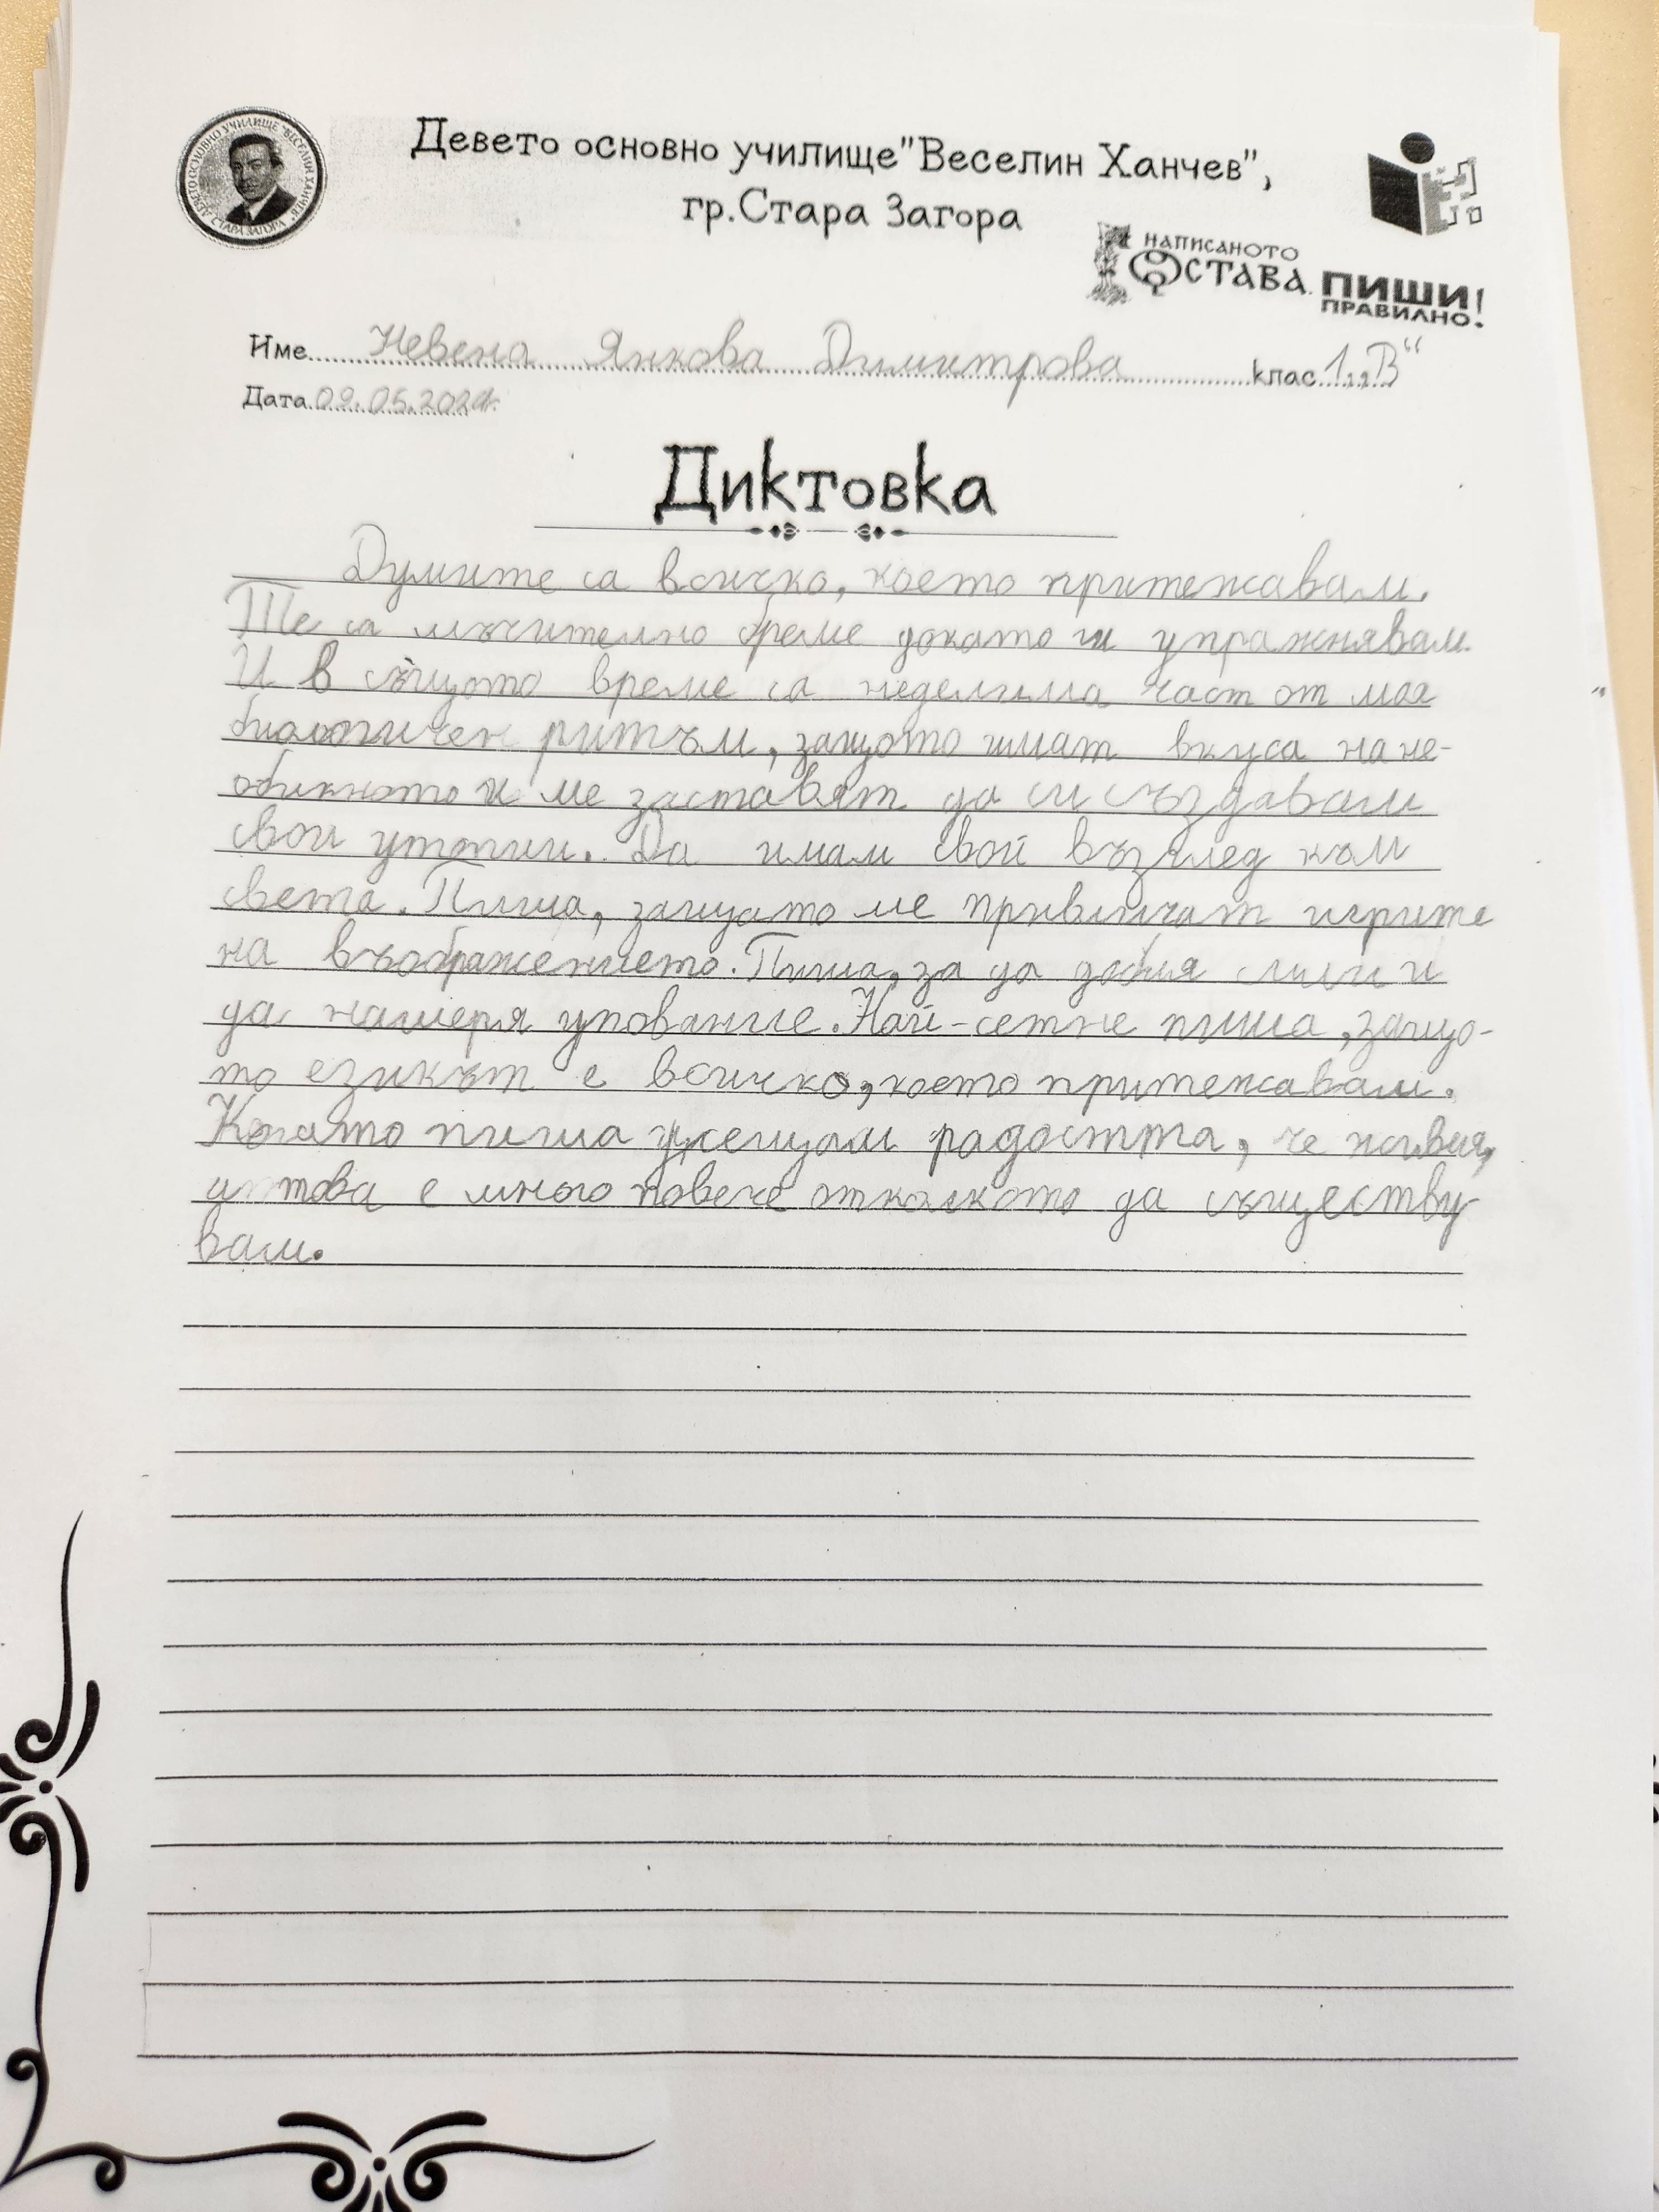 ДЕВЕТО ОСНОВНО УЧИЛИЩЕ "ВЕСЕЛИН ХАНЧЕВ" СТАРА ЗАГОРА
Девето основно училище "Веселин Ханчев",
гр.Стара Загора
НАПИСАНОТО
ОСТАВА. ПИШИ
ПРАВИЛНО!
Име Невена Янкова Димитрова клас 1 „В“
Дата 09.05.2024г.
Диктовка
Думите са всичко, което притежавам.
Те са мъчително бреме докато ги упражнявам.
И в същото време са неделима част от моя
биологичен ритъм, защото имат вкуса на не-
обикното и ме заставят да си създавам
свои утопии. Да имам свой възглед към
света. Пиша, защото ме привличат игрите
на въображението. Пиша, за да добия сили и
да намеря упование. Най-сетне пиша, защо-
то езикът е всичко, което притежавам.
Когато пиша усещам радостта, че живея,
и това е много повече отколкото да съществу-
вам.